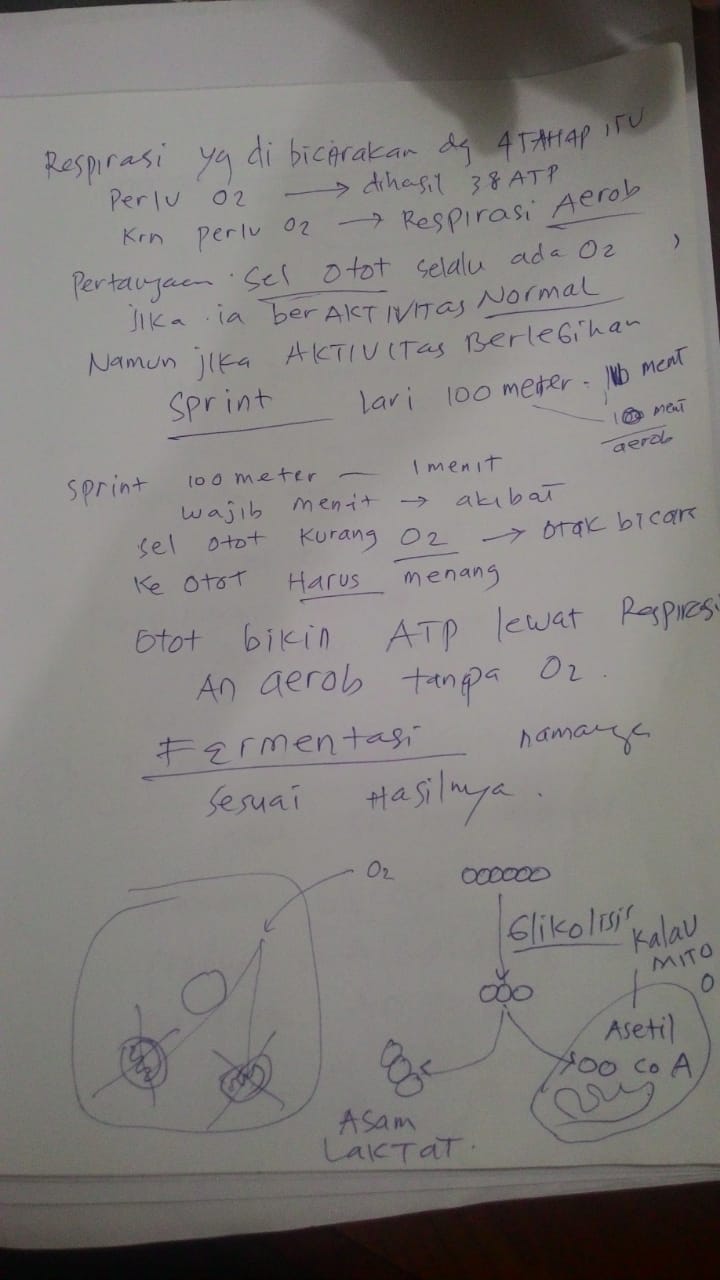 Respirasi yg di bicarakan dg 4 TAHAP ITU
Perlu O2 → dihasil 38 ATP
Krn perlu O2 → Respirasi Aerob
Pertanyaan. Sel Otot selalu ada O2,
Jika ia berAKTIVITAS Normal
Namun jika AKTIVITAS Berlebihan
Sprint lari 100 meter - 10 menit
menit
aerob
Sprint 100 meter — 1 menit
wajib menit → akibat
sel otot kurang O2 → otak bicara
Ke otot Harus menang
Otot bikin ATP lewat Respirasi
An aerob tanpa O2.
Fermentasi namanya
Sesuai Hasilnya.
O2
Glikolisis
Kalau
MITO
O
Asetil
Co A
Asam
LAKTAT.